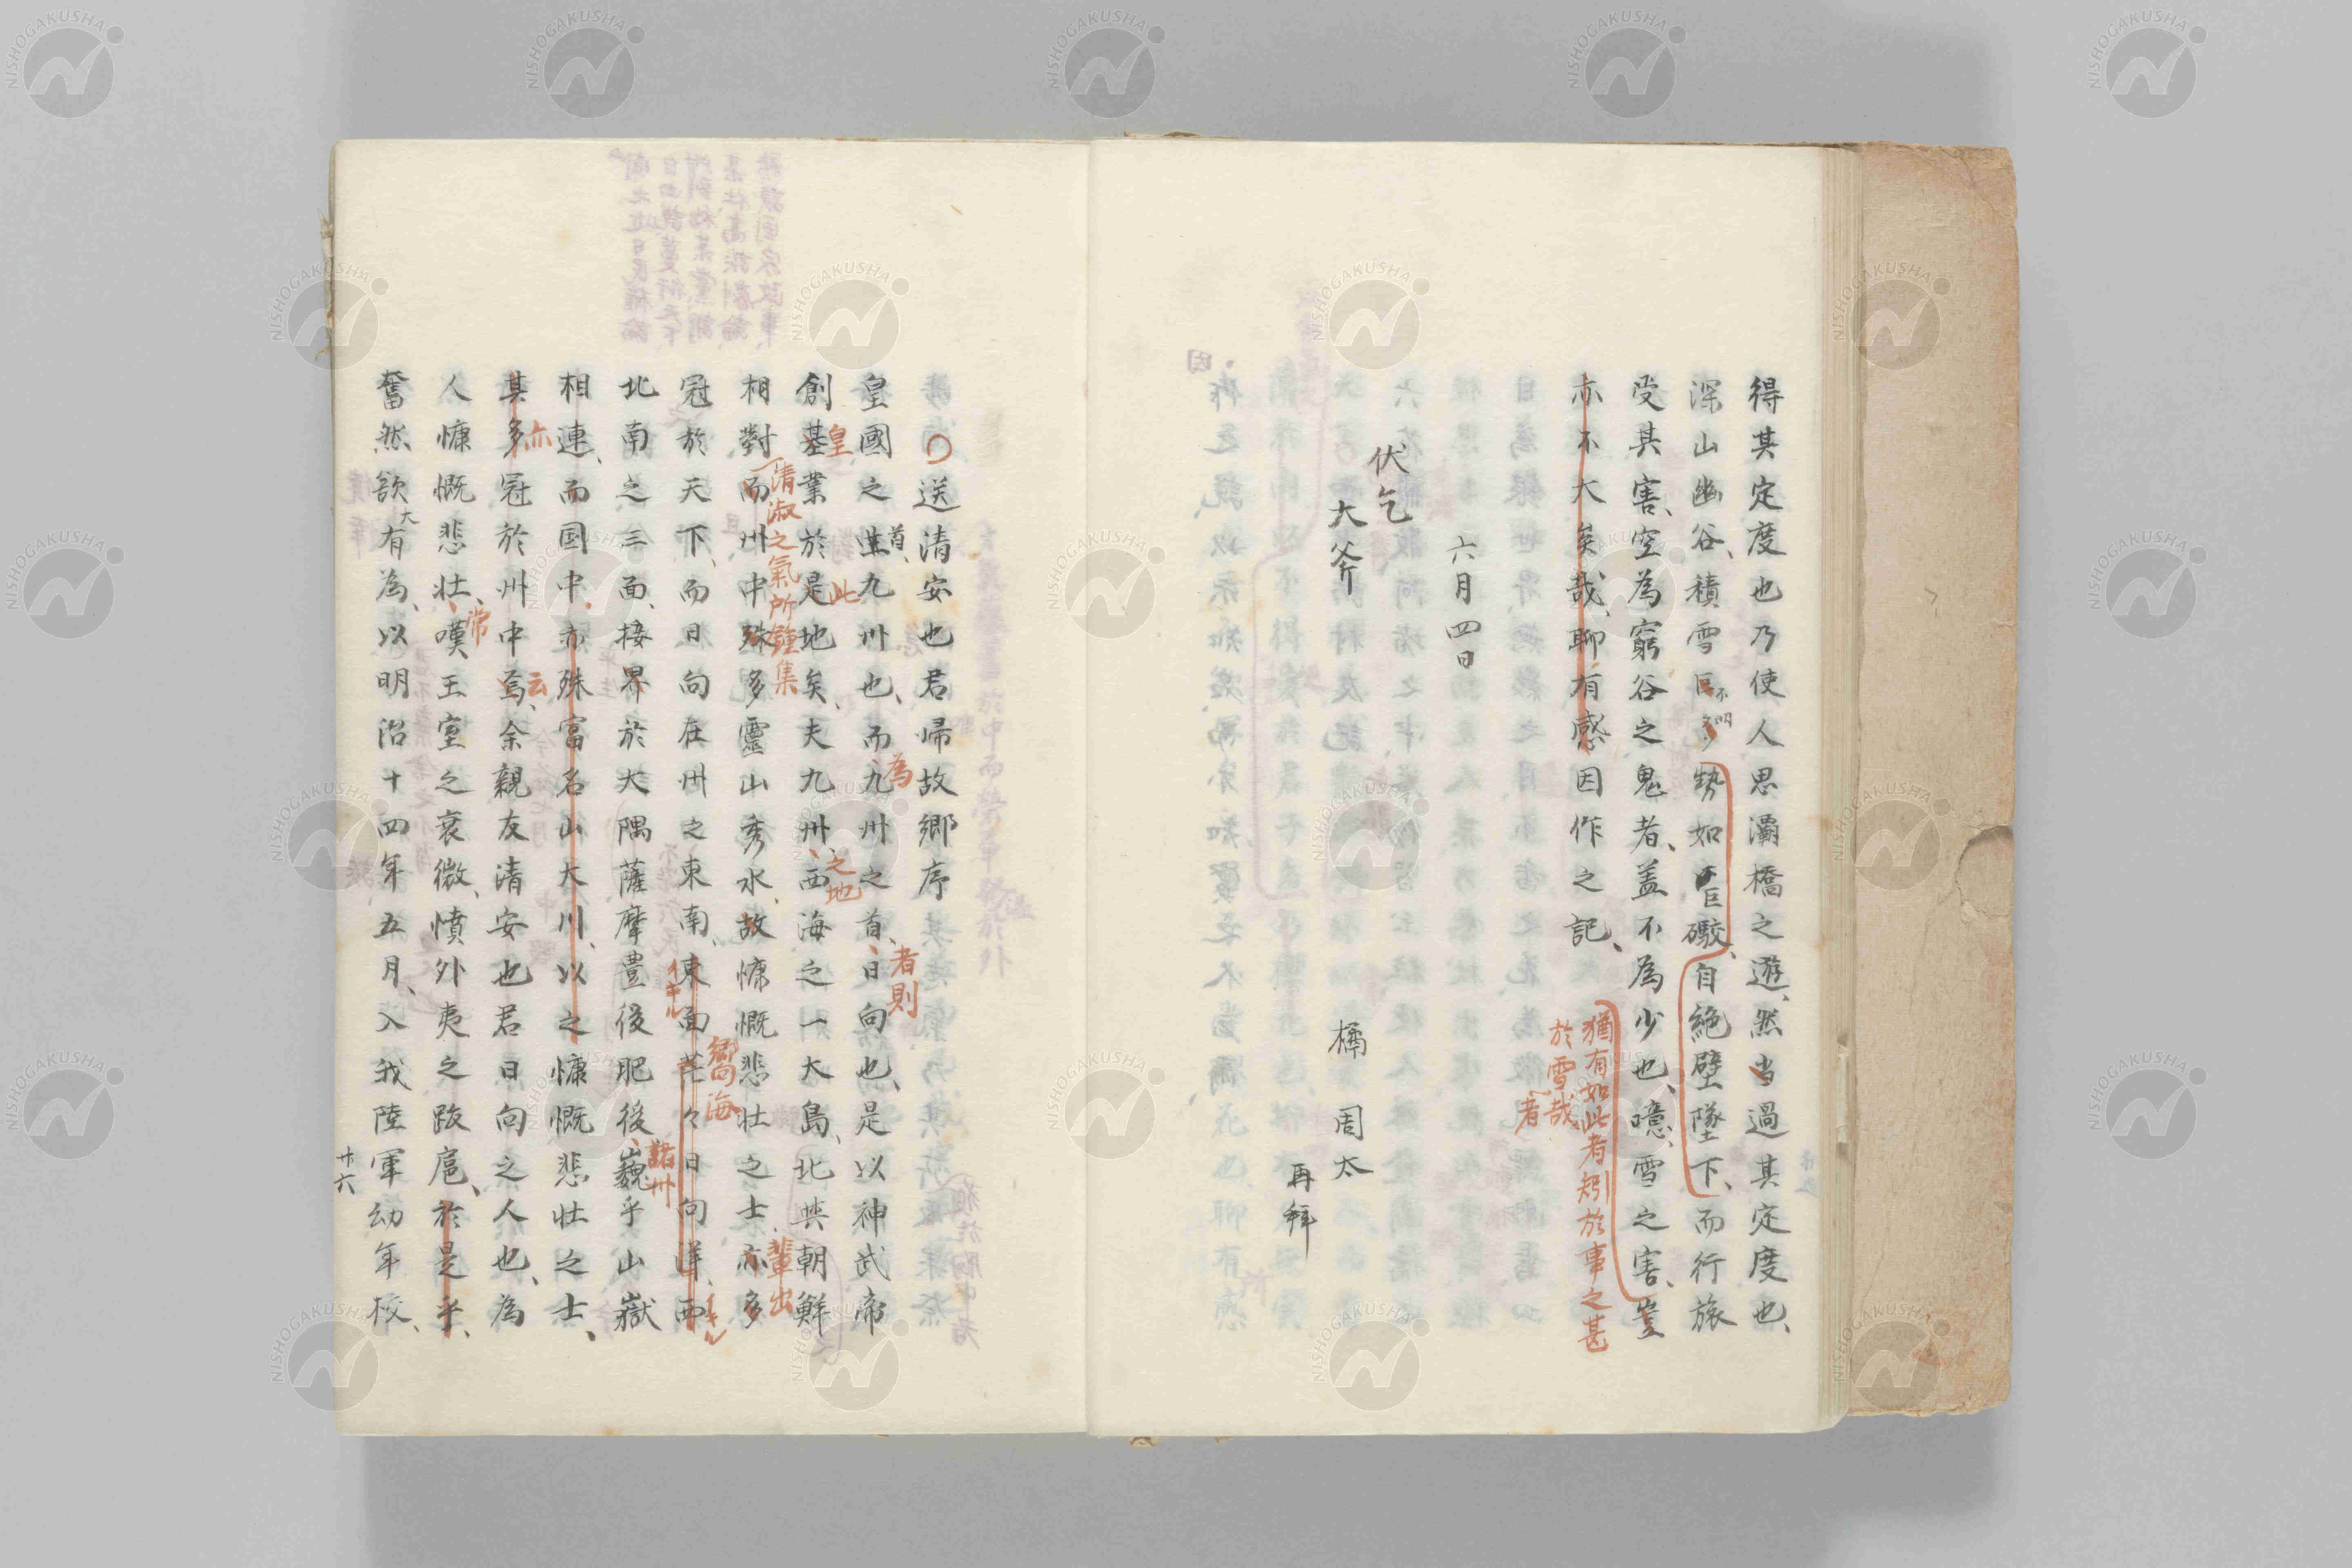 得其定度也乃使人思灞橋之遊、然当過其定度也、
深山幽谷、積雪
不明
勢如巨礮、自絶壁墜下、而行旅
受其害、空為窮谷之鬼者、盖不為少也、噫、雪之害、豈
亦不大矣哉、聊有感因作之記、
猶有如此者矧於事之甚
於雪哉
者
六月四日
伏乞
大斧
橘周太
再拜
送清安也君帰故郷序
皇國之 九州也、而九州之首、日向也、是以神武帝
首
為
者則
創基業於是地矣、夫九州、西海之一大島、北與朝鮮
皇
此
之地
相對而州中殊多靈山秀水、故慷慨悲壮之士、亦多
清淑之氣所鍾集
輩出
冠於天下、而日向在州之東南、東面茫々日向洋、西
イキル
郷海
イキル
北南之三面、接界於大隅薩摩豊後肥後、巍乎山嶽
諸州
相連、而国中、亦殊富名山大川、以之慷慨悲壮之士、
其多冠於州中焉、余親友清安也君日向之人也、為
亦
云
人慷慨悲壮、嘆王室之衰微、憤外夷之跋扈、於是乎、
常
奮然欲有為、以明治十四年五月、入我陸軍幼年校、
大
廿六
NISHOGAKUSHA